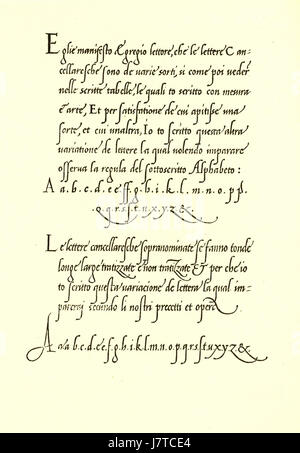 Eglie manifesto Egregio lettore, che le lettere Can-
cellaresche sono de varie sorti, si come poi veder
nelle scritte tabelle, le quali to scritto con mesura
e arte, Et per satisfatione de cui apitisse una
sorte, et cui unaltra, Io to scritto questa altra
variatione de lettere la qual volendo imparare
osserva la regula del sottoscritto Alphabeto:
A a.b.c.d.e.e f.g.b.i.k.l.m.n.o.p.p.
q.r.s.t.u.x.y.z.&.
Le lettere cancellaresche sopranominate Si fanno tonde
longe large tratizzate e non tratizzate ET per che io
to scritto questa variacione de lettera la qual im-
pareraj secundo li nostri precetti et opere
A a.b.c.d.e.f.g.h.i.k.l.m.n.o.p.q.r.s.t.u.x.y.z.&.
alamy
Image ID: J7TCE4
www.alamy.com